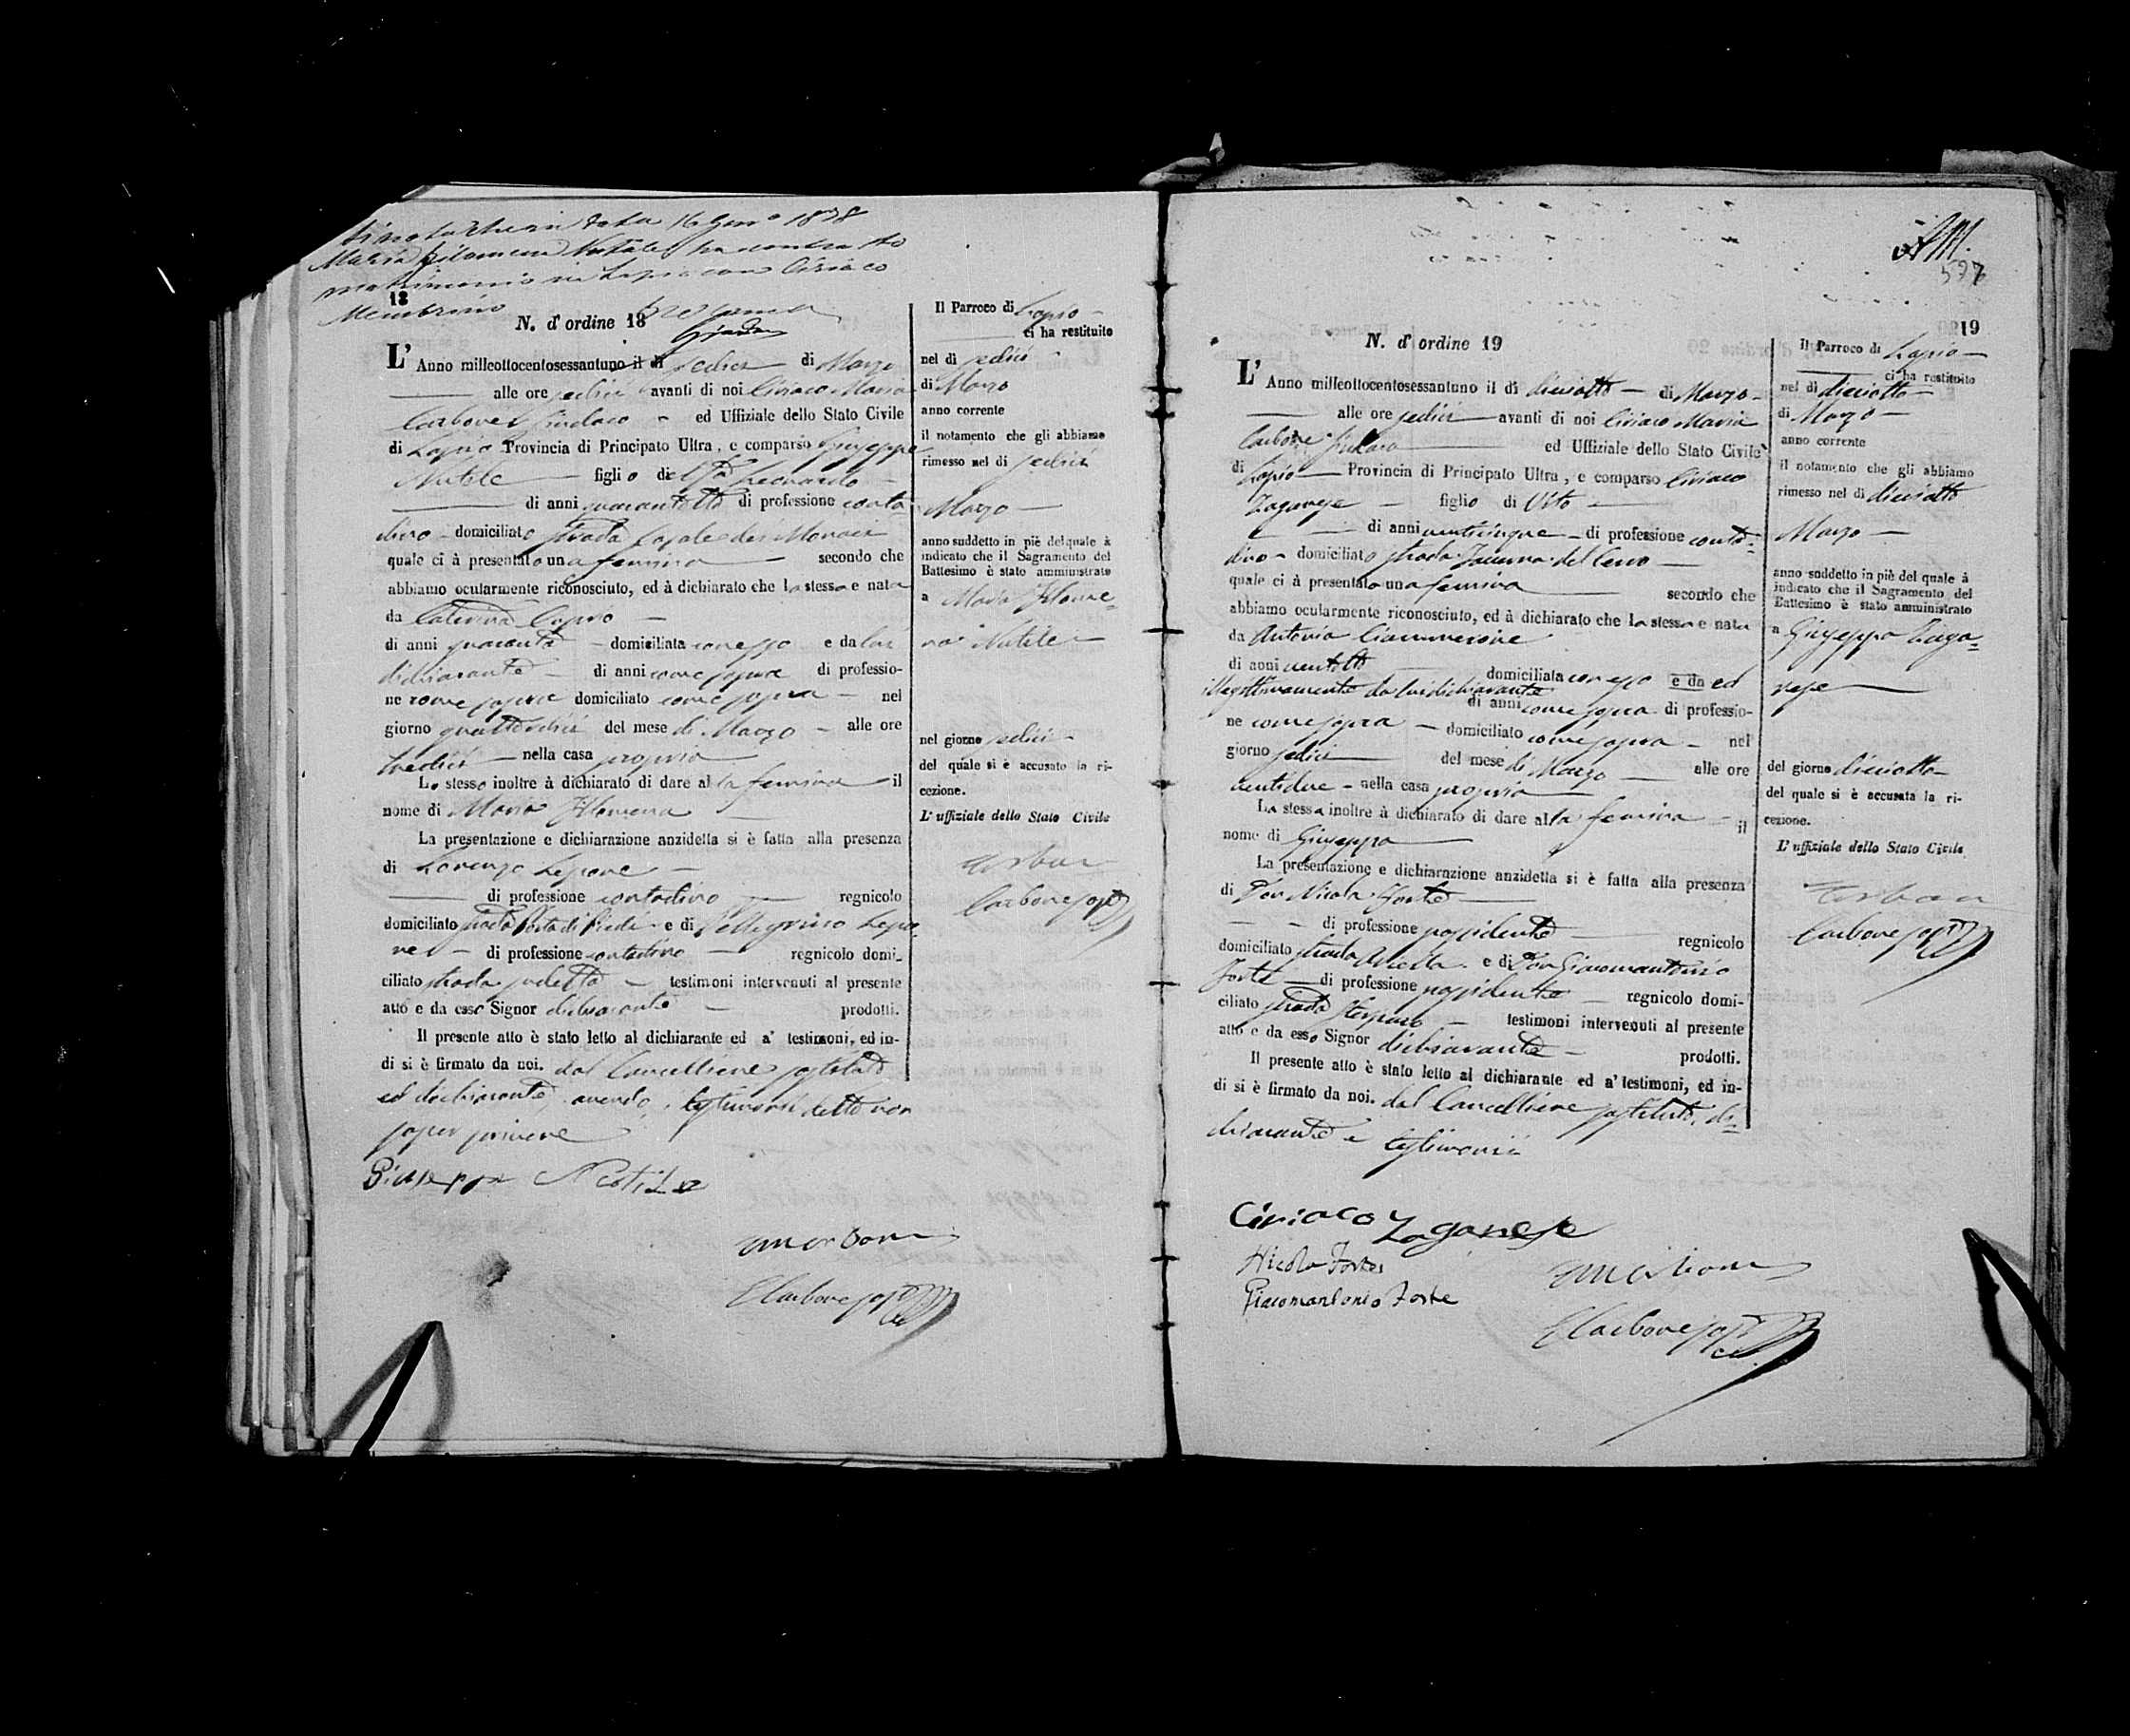 Maria Filomena Nutile ha contratto
matrimonio in Lapio con Ciriaco
Membrino
18
N. d' ordine 18
L' Anno milleottocentosessantuno il di sedici di Marzo
alle ore sedici avanti di noi Ciriaco Maria
Carbone Sindaco ed Uffiziale dello Stato Civile
di Lapio Provincia di Principato Ultra, e comparso Giuseppe
Nutile figlio di Leonardo
di anni quarantotto di professione conta-
dino domiciliato strada Casale dei Monaci
quale ci à presentato una femina secondo che
abbiamo ocularmente riconosciuto, ed à dichiarato che la stessa e nata
da Caterina
di anni quaranta domiciliata con esso e da lui
dichiarante di anni come sopra di professio-
ne come sopra domiciliato come sopra nel
giorno quattordici del mese di Marzo alle ore
tredici nella casa propria
Lo stesso inoltre à dichiarato di dare alla femina il
nome di Maria Filomena
La presentazione e dichiarazione anzidetta si è fatta alla presenza
di Lorenzo Lepore
di professione contadino regnicolo
domiciliato strada e di Pellegrino Lepo-
re di professione contadino regnicolo domi-
ciliato strada sudetta testimoni intervenuti al presente
atto e da esso Signor dichiarante prodotti.
Il presente atto è stato letto al dichiarante ed a' testimoni, ed in-
di si è firmato da noi. dal Cancelliere sostituto
ed dichiarante, avendo i testimoni detto non
saper scrivere
Giuseppe Nutile
Carbone
Il Parroco di Lapio
ci ha restituito
nel di sedici
di Marzo
anno corrente
il notamento che gli abbiamo
rimesso nel di sedici
Marzo
anno suddetto in piè del quale à
indicato che il Sagramento del
Battesimo è stato amministrato
a Maria Filome-
na Nutile
nel giorno sedici
del quale si è accusato la ri-
cezione.
L' uffiziale dello Stato Civile
Carbone
597
19
N. d' ordine 19
L' Anno milleottocentosessantuno il di diciotto di Marzo
alle ore sedici avanti di noi Ciriaco Maria
Carbone Sindaco ed Uffiziale dello Stato Civile
di Lapio Provincia di Principato Ultra, e comparso Ciriaco
Zaganese figlio di Vito
di anni venticinque di professione conta-
dino domiciliato strada
quale ci à presentato una femina secondo che
abbiamo ocularmente riconosciuto, ed à dichiarato che la stessa e nata
da Antonia Ciammerione
di anni ventotto domiciliata con esso e da ed
illegittimamente da lui dichiarante
di anni come sopra di professio-
ne come sopra domiciliato come sopra nel
giorno sedici del mese di Marzo alle ore
ventidue nella casa propria
La stessa inoltre à dichiarato di dare alla femina il
nome di Giuseppa
La presentazione e dichiarazione anzidetta si è fatta alla presenza
di Don Nicola Forte
di professione possidente regnicolo
domiciliato strada e di Don Giacomantonio
Forte di professione possidente regnicolo domi-
ciliato strada testimoni intervenuti al presente
atto e da esso Signor dichiarante prodotti.
Il presente atto è stato letto al dichiarante ed a' testimoni, ed in-
di si è firmato da noi. dal Cancelliere sostituto, di-
chiarante e testimonii
Ciriaco Zaganese
Nicola Forte
Giacomantonio Forte
Carbone
Il Parroco di Lapio
ci ha restituito
nel di diciotto
di Marzo
anno corrente
il notamento che gli abbiamo
rimesso nel di diciotto
Marzo
anno suddetto in piè del quale à
indicato che il Sagramento del
Battesimo è stato amministrato
a Giuseppa Zaga-
nese
del giorno diciotto
del quale si è accusata la ri-
cezione.
L' uffiziale dello Stato Civile
Carbone